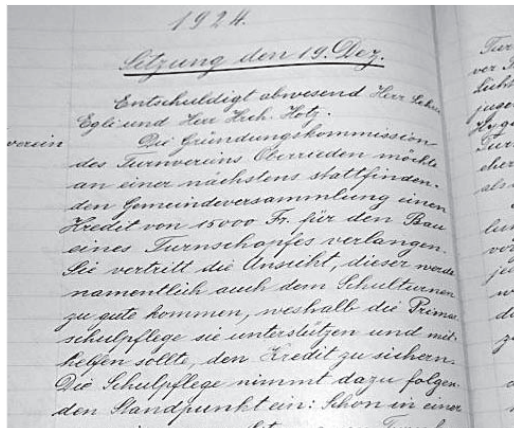 1924.
Sitzung den 19. Dez.
Entschuldigt abwesend Herr Lehrer
Egli und Herr Hch. Hotz.
verein
Die Gründungskommission
des Turnvereins Oberrieden möchte
an einer nächstens stattfinden-
den Gemeindeversammlung einen
Kredit von 15000 Fr. für den Bau
eines Turnschopfes verlangen.
Sie vertritt die Ansicht, dieser werde
namentlich auch dem Schulturnen
zu gute kommen, weshalb die Primar
schulpflege sie unterstützen und mit-
helfen sollte, den Kredit zu sichern.
Die Schulpflege nimmt dazu folgen-
den Standpunkt ein: Schon in einer